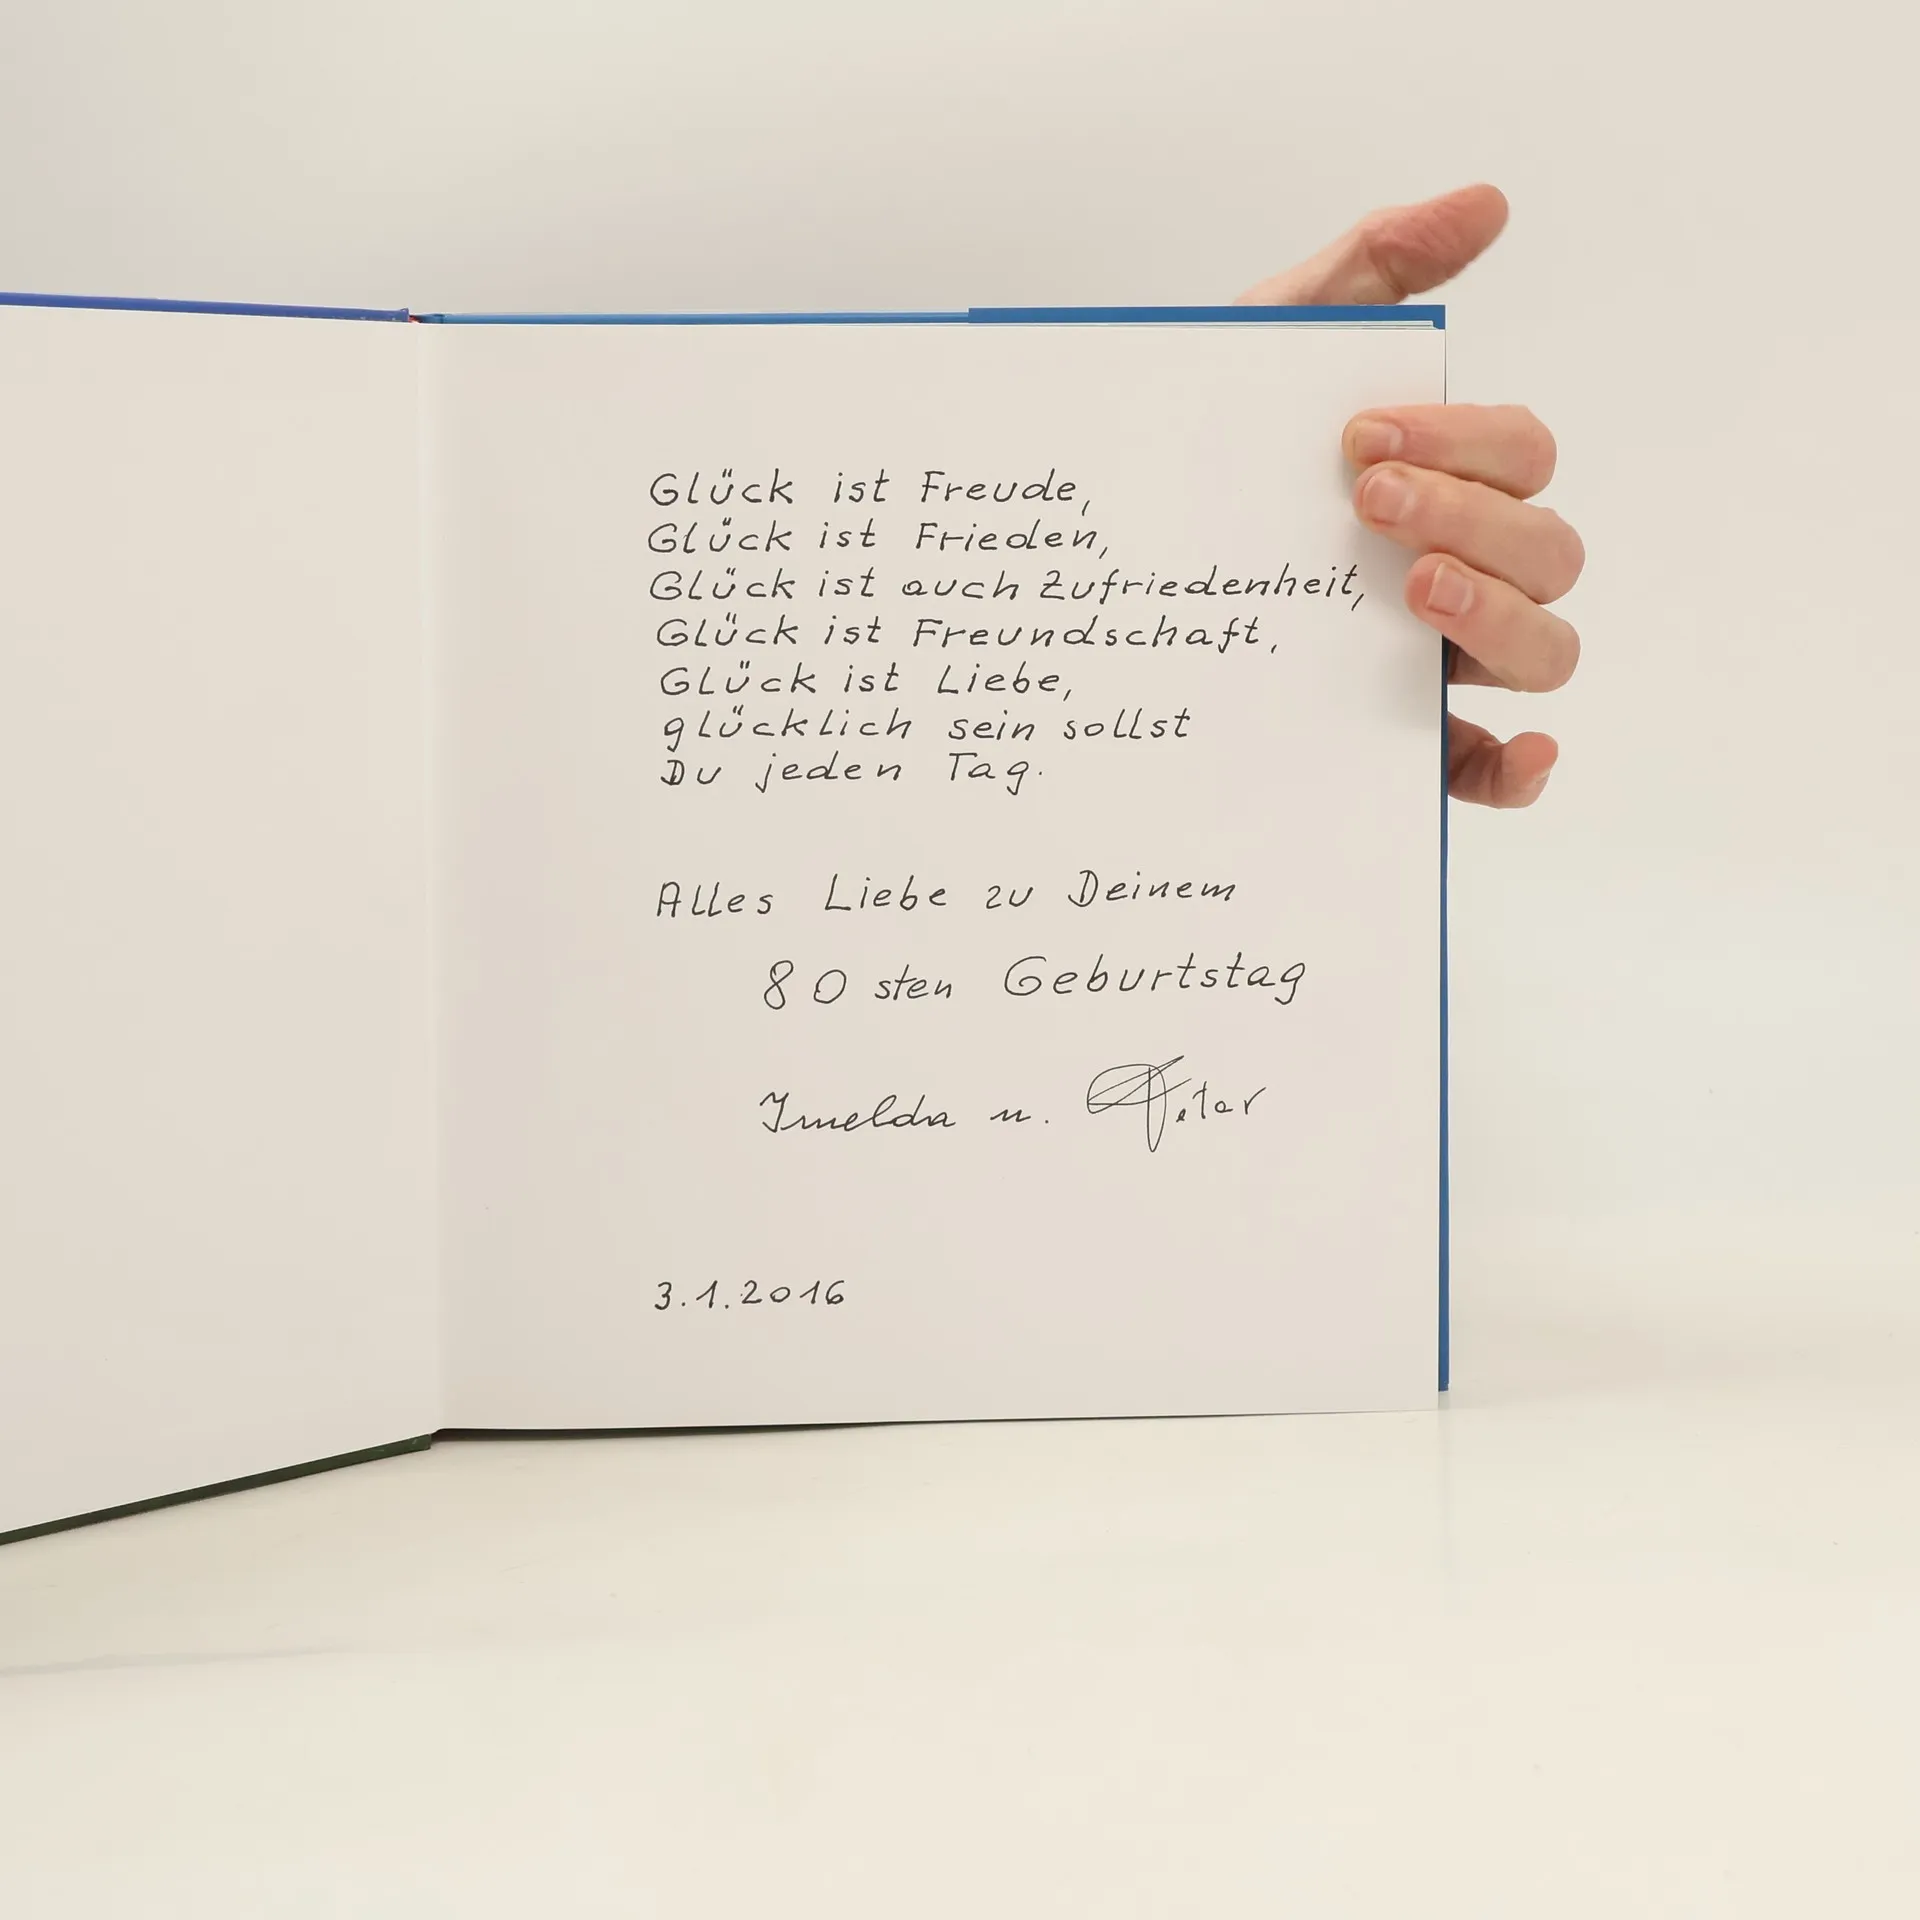 Glück ist Freude,
Glück ist Frieden,
Glück ist auch Zufriedenheit,
Glück ist Freundschaft,
Glück ist Liebe,
glücklich sein sollst
Du jeden Tag.
Alles Liebe zu Deinem
80 sten Geburtstag
Imelda u. Peter
3.1.2016